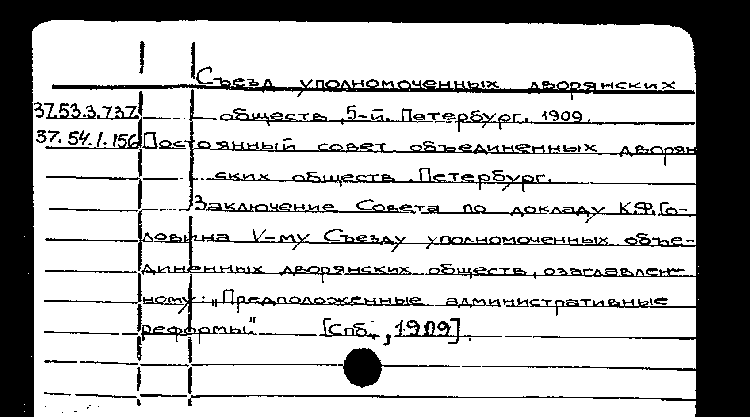 Съезд уполномоченных дворянских
37.53.3.737. обществ, 5-й. Петербург. 1909.
37.54.1.156 Постоянный совет объединенных дворян
ских обществ. Петербург.
Заключение Совета по докладу К.Ф.Го-
ловина V-му Съезду уполномоченных объе-
диненных дворянских обществ, озаглавлен-
ному: „Предположенные административные
реформы" [Спб., 1909].